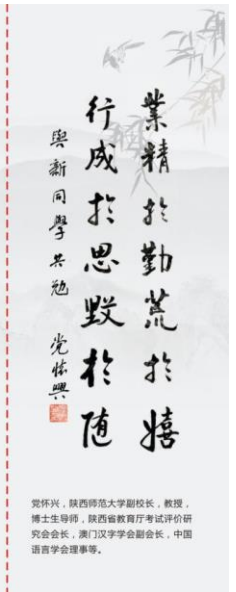 業精於勤荒於嬉
行成於思毀於随
與新同學共勉 党怀興
党怀兴，陕西师范大学副校长，教授，
博士生导师，陕西省教育厅考试评价研
究会会长，澳门汉字学会副会长，中国
语言学会理事等。